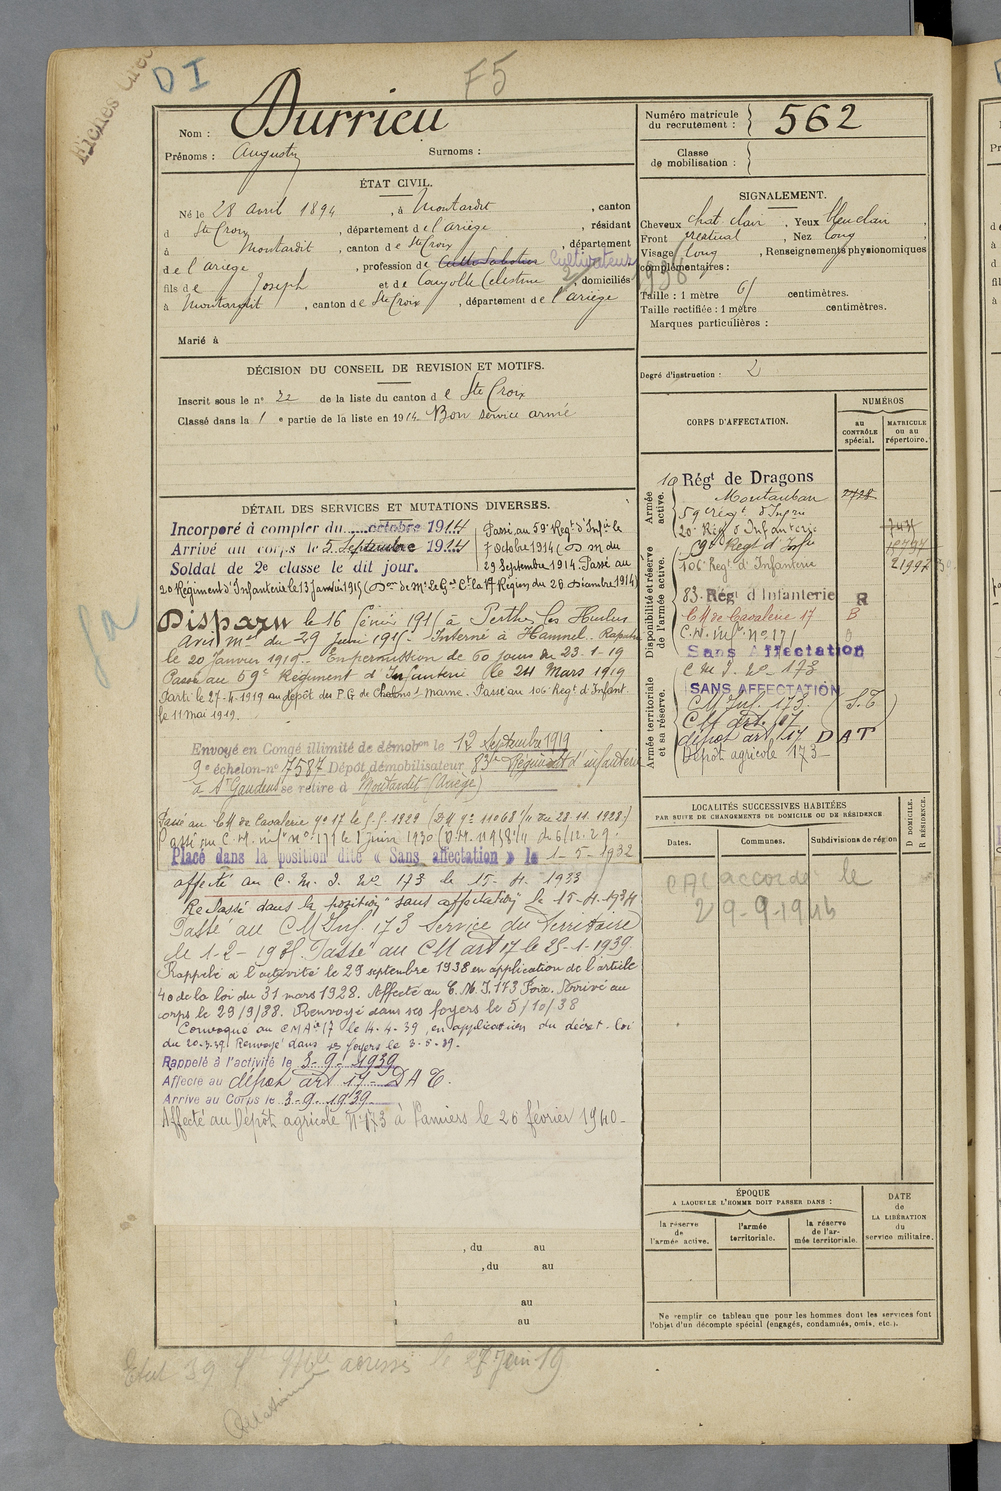 DI
F5
Nom : Durrieu
Prénoms : Augustin Surnoms :
Numéro matricule du recrutement : 562
Classe de mobilisation :
ÉTAT CIVIL.
Né le 28 avril 1894, à Montardit, canton
d Ste Croix, département de l'ariège, résidant
à Montardit, canton de Ste Croix, département
de l'ariege, profession de Cultivateur
fils de Joseph et de Celestine, domiciliés
à Montardit, canton de Ste Croix, département de l'ariège
Marié à
SIGNALEMENT.
Cheveux chat. clair, Yeux bleu clair
Front, Nez long
Visage long, Renseignements physionomiques
complémentaires :
1936
Taille : 1 mètre 61 centimètres.
Taille rectifiée : 1 mètre centimètres.
Marques particulières :
Degré d'instruction : 2
DÉCISION DU CONSEIL DE REVISION ET MOTIFS.
Inscrit sous le n° 22 de la liste du canton de Ste Croix
Classé dans la 1e partie de la liste en 1914 Bon service armé
DÉTAIL DES SERVICES ET MUTATIONS DIVERSES.
Incorporé à compter du octobre 1914
Arrivé au corps le 5 Septembre 1914
Soldat de 2e classe le dit jour.
Passé au 59e Regt d'Infie le
7 Octobre 1914 (D. M du
29 Septembre 1914. Passé au
20 Régiment d'Infanterie le 13 Janvier 1915
Disparu le 16 février 1915 à Perthes les Hurlus
Avis mel du 29 juin 1915. Interné à Hammel. Rapatrié
le 20 Janvier 1919. En permission de 60 jours du 23.1.19
Passé au 59e Régiment d'Infanterie le 24 Mars 1919
Parti le 27.4.1919 au dépôt des P.G de Chalons s/ Marne. Passé au 106e Regt d'Infant.
le 11 mai 1919.
Envoyé en Congé illimité de démobon le 12 Septembre 1919
9e échelon-n° 7587 Dépôt démobilisateur 83e Régiment d'infanterie
à St Gaudens se retire à Montardit (Ariège)
Placé dans la position dite « Sans affectation » le 1-5-1932
affecté au C. M. I. N° 173 le 15-4-1933
Reclassé dans la position "sans affectation" le 15-4-1934
Passé au CM Inf. 173 Service du Territoire
Passé au CM art 17 le 25-1-1939.
Rappelé à l'activité le 29 septembre 1938 en application de l'article
40 de la loi du 31 mars 1928. Affecté au C.M.I. 173 Foix. Arrivé au
corps le 29/9/38. Renvoyé dans ses foyers le 5/10/38
Convoqué au CMAie 17 le 4-4-39, en application du décret-loi
du 20.3.39. Renvoyé dans ses foyers le 3-5-39.
Rappelé à l'activité le 3-9-1939
Affecté au dépôt art 17 - DAT.
Arrivé au Corps le 3-9-1939
Affecté au Dépôt agricole N° 173 à Pamiers le 20 février 1940
CORPS D'AFFECTATION.
NUMÉROS
au CONTRÔLE spécial.
MATRICULE ou au répertoire.
Armée active.
10 Régt de Dragons
Montauban 2728
59e régt d'Infie
20e Rég d'Infanterie
Disponibilité et réserve de l'armée active.
59e Regt d'Infie
106e Regt d'Infanterie 21997
83. Régt d'Infanterie R
CM de Cavalerie 17 B
Sans Affectation
C M I. N° 173
Armée territoriale et sa réserve.
SANS AFFECTATION
CM Inf. 173. (S.T)
CM art. 17
dépôt art 17 DAT
Dépôt agricole 173
LOCALITÉS SUCCESSIVES HABITÉES
PAR SUITE DE CHANGEMENTS DE DOMICILE OU DE RÉSIDENCE
Dates. Communes. Subdivisions de région
D DOMICILE.
R RÉSIDENCE.
accordé le
ÉPOQUE
A LAQUELLE L'HOMME DOIT PASSER DANS :
la réserve de l'armée active.
l'armée territoriale.
la réserve de l'armée territoriale.
DATE de LA LIBÉRATION du service militaire.
, du au
, du au
au
au
Ne remplir ce tableau que pour les hommes dont les services font
l'objet d'un décompte spécial (engagés, condamnés, omis, etc.).